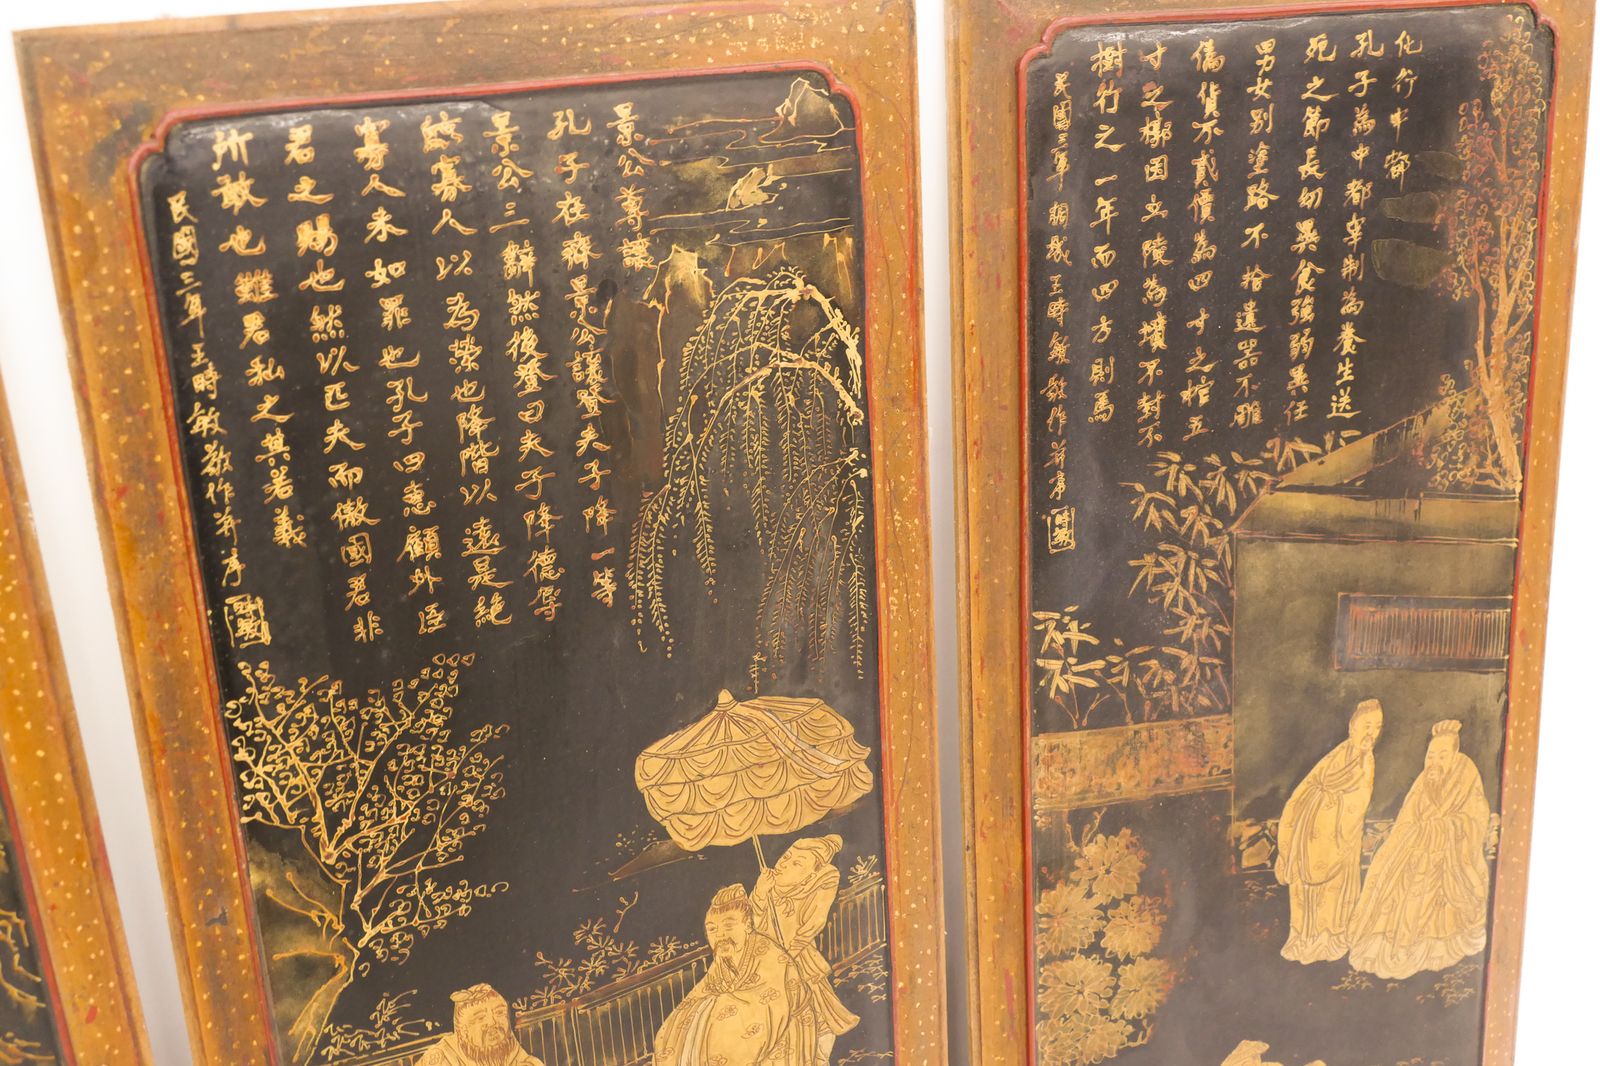 化行中都
孔子為中都宰制為養生送
死之節長幼異食強弱異任
男女別塗路不拾遺器不雕
僞貨不貳價為四寸之棺五
寸之槨因丘陵為墳不封不
樹行之一年而四方則焉
民國三年桐城王時敏敬作并序
景公尊讓
孔子在齊景公讓登夫子降一等
景公三辭然後登曰夫子降德辱
臨寡人以為榮也降階以遠是絕
寡人未知罪也孔子曰惠顧外臣
君之賜也然以匹夫而敵國君非
所敢也雖君私之其若義
民國三年王時敏敬作并序